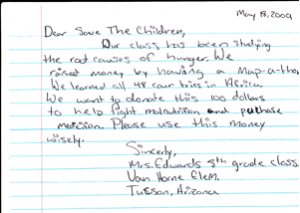 May 18, 2009
Dear Save The Children,
Our class has been studying
the root causes of hunger. We
raised money by having a Map-a-thon
We learned all 48 countries in Africa
We want to donate this 100 dollars
to help fight malnutrition and purchase
medicine. Please use this money
wisely.
Sincerly,
Mrs. Edwards 5th grade class.
Van Horne Elem.
Tusson, Arizona